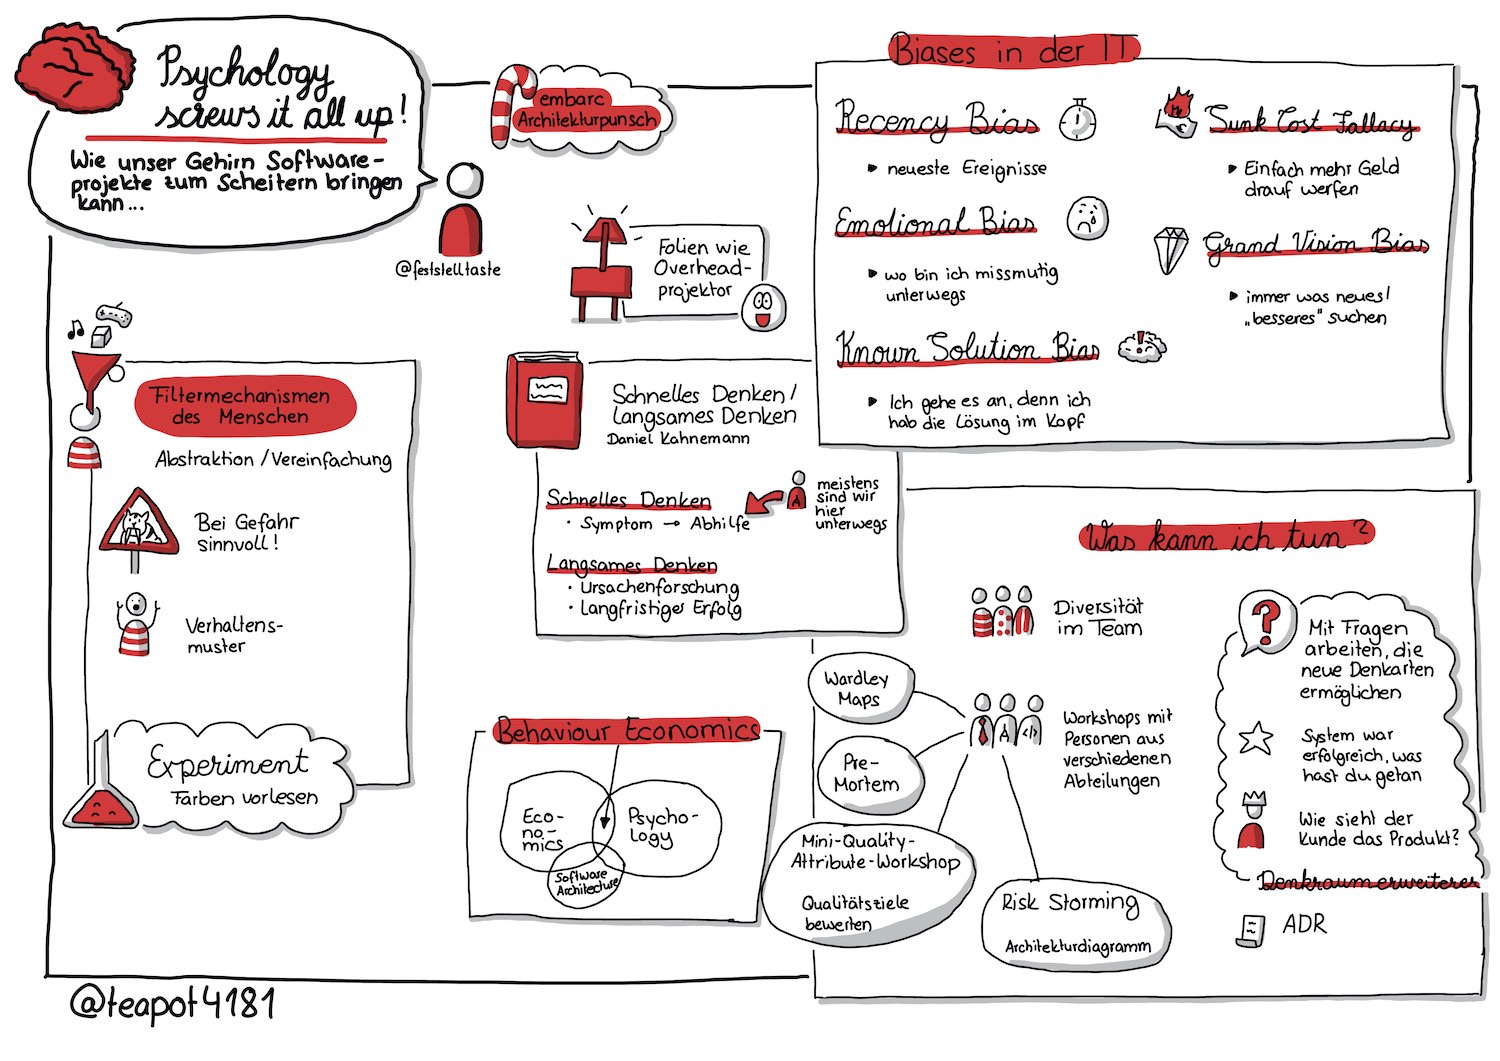 Psychology
screws it all up!
Wie unser Gehirn Software-
projekte zum Scheitern bringen
kann...
@feststelltaste
embarc
Architekturpunsch
Folien wie
Overhead-
projektor
Filtermechanismen
des Menschen
Abstraktion / Vereinfachung
Bei Gefahr
sinnvoll!
Verhaltens-
muster
Experiment
Farben vorlesen
Schnelles Denken /
langsames Denken
Daniel Kahnemann
Schnelles Denken
• Symptom → Abhilfe
meistens
sind wir
hier
unterwegs
A
Langsames Denken
• Ursachenforschung
• Langfristiges Erfolg
Behaviour Economics
Eco-
no-
mics
Psycho-
logy
Software
Architecture
Biases in der IT
Recency Bias
▸ neueste Ereignisse
Emotional Bias
▸ wo bin ich missmutig
unterwegs
Known Solution Bias
▸ Ich gehe es an, denn ich
hab die Lösung im Kopf
Sunk Cost Fallacy
▸ Einfach mehr Geld
drauf werfen
Grand Vision Bias
▸ immer was neues!
„besseres" suchen
Was kann ich tun?
Diversität
im Team
Workshops mit
Personen aus
verschiedenen
Abteilungen
A
</>
Wardley
Maps
Pre-
Mortem
Mini-Quality-
Attribute-Workshop
Qualitätsziele
bewerten
Risk Storming
Architekturdiagramm
?
Mit Fragen
arbeiten, die
neue Denkarten
ermöglichen
System war
erfolgreich, was
hast du getan
Wie sieht der
Kunde das Produkt?
Denkraumerweiterer
ADR
@teapot4181